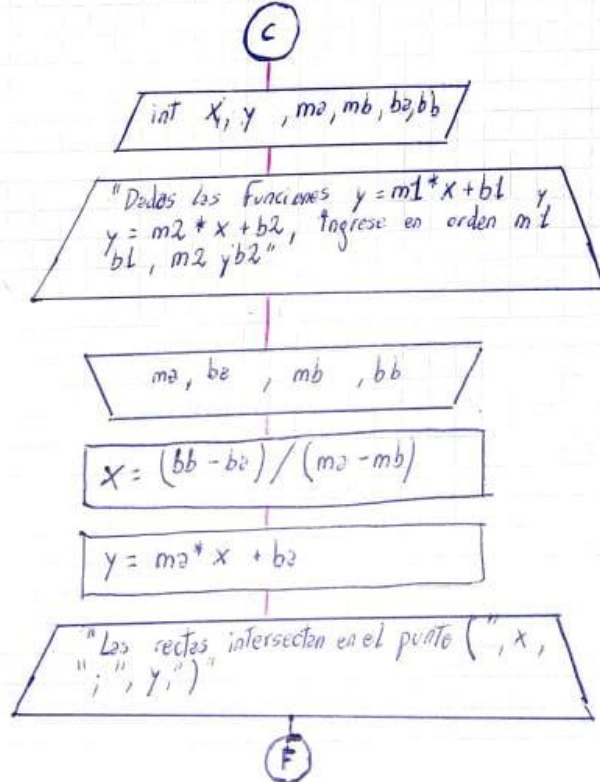 C
int x, y , ma, mb, ba, bb
"Dadas las funciones y = m1*x + b1 y
y = m2 * x + b2, Ingrese en orden m1
b1, m2 y b2"
ma, ba , mb , bb
x = (bb - ba) / (ma - mb)
y = ma* x + ba
"Las rectas intersectan en el punto (", x,
";", y, ")"
F